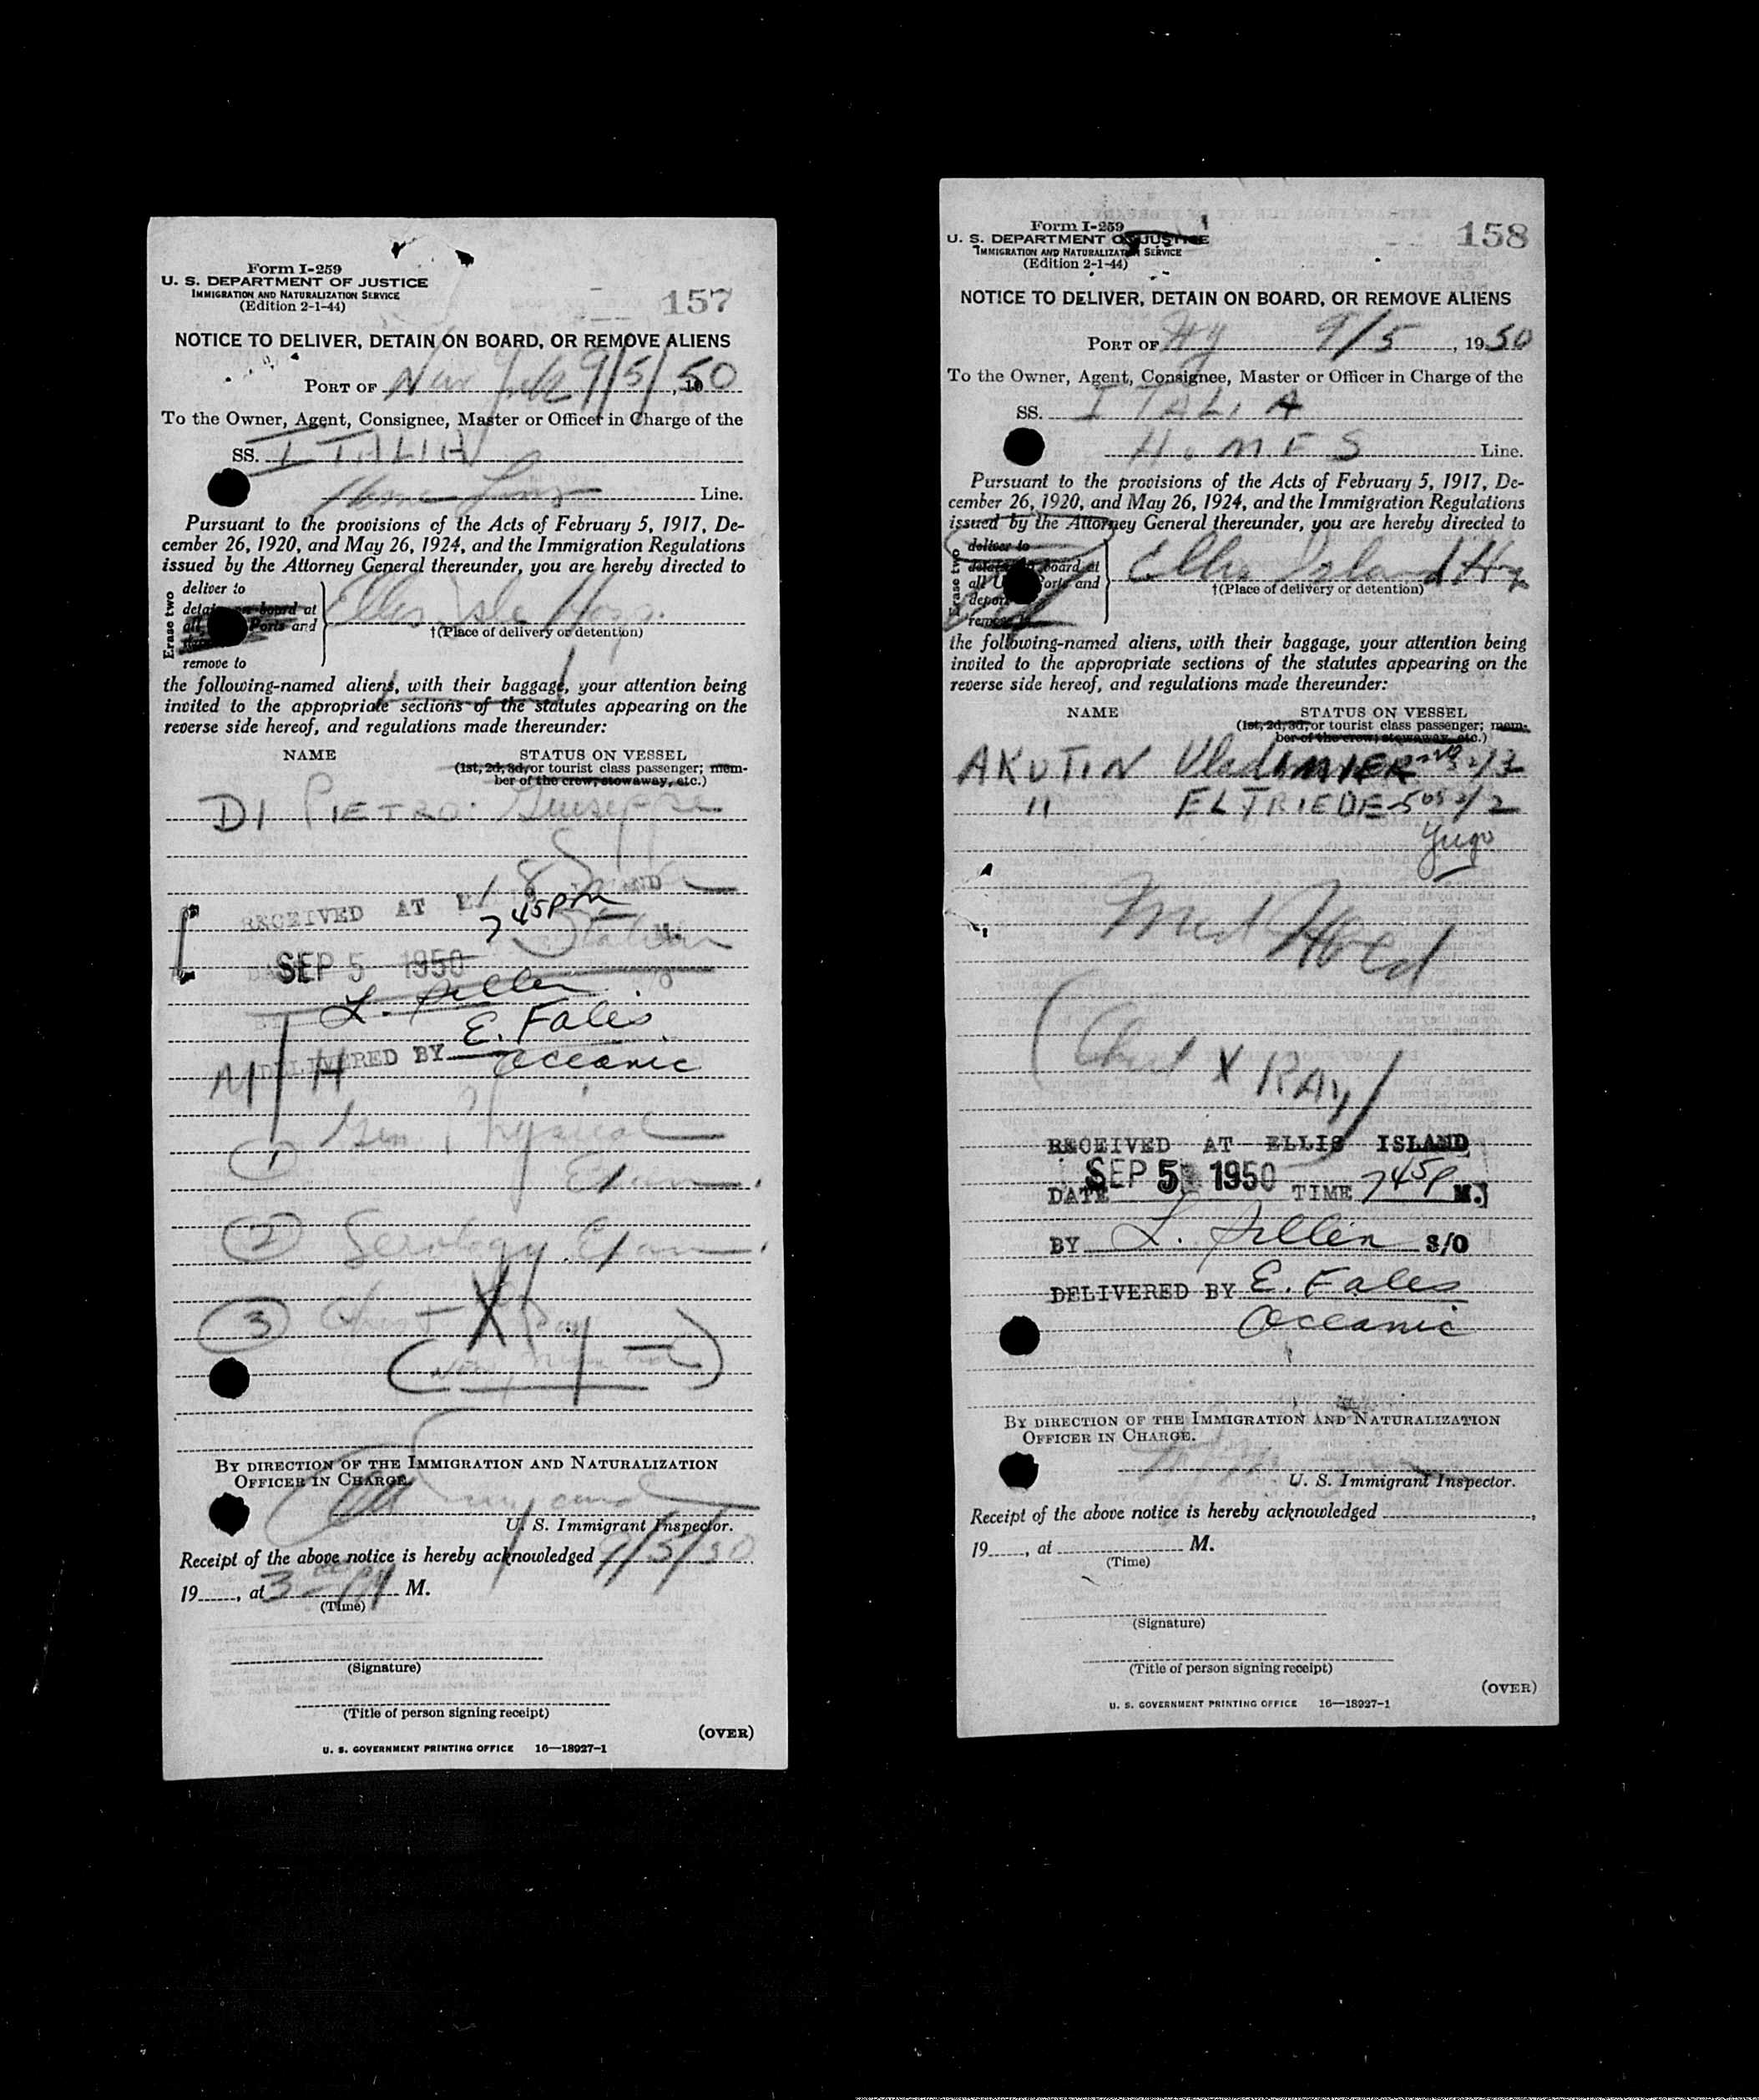 Form I-259
U. S. DEPARTMENT OF JUSTICE
IMMIGRATION AND NATURALIZATION SERVICE
(Edition 2-1-44)
157
NOTICE TO DELIVER, DETAIN ON BOARD, OR REMOVE ALIENS
PORT OF New York 9/5/50, 19
To the Owner, Agent, Consignee, Master or Officer in Charge of the
SS. ITALIA
Home Lines Line.
Pursuant to the provisions of the Acts of February 5, 1917, De-
cember 26, 1920, and May 26, 1924, and the Immigration Regulations
issued by the Attorney General thereunder, you are hereby directed to
Erase two
deliver to
detain on board at
all Ports and
remove to
Ellis Isle Hosp.
†(Place of delivery or detention)
the following-named aliens, with their baggage, your attention being
invited to the appropriate sections of the statutes appearing on the
reverse side hereof, and regulations made thereunder:
NAME STATUS ON VESSEL
(1st, 2d, 3d, or tourist class passenger; mem-
ber of the crew, stowaway, etc.)
DI PIETRO: Giuseppe
RECEIVED AT
7 45 PM
Italian
SEP 5 1950
E. Fales
DELIVERED BY Oceanic
M/H
1 Gen. Physical
Exam.
2 Serology Exam.
3 Chest X Ray
BY DIRECTION OF THE IMMIGRATION AND NATURALIZATION
OFFICER IN CHARGE.
U. S. Immigrant Inspector.
Receipt of the above notice is hereby acknowledged 9/5/50
19, at 3 PM M.
(Time)
(Signature)
(Title of person signing receipt)
(OVER)
U. S. GOVERNMENT PRINTING OFFICE 16—18927-1
Form I-259
U. S. DEPARTMENT OF JUSTICE
IMMIGRATION AND NATURALIZATION SERVICE
(Edition 2-1-44)
158
NOTICE TO DELIVER, DETAIN ON BOARD, OR REMOVE ALIENS
PORT OF NY 9/5, 1950
To the Owner, Agent, Consignee, Master or Officer in Charge of the
SS. ITALIA
HOMES Line.
Pursuant to the provisions of the Acts of February 5, 1917, De-
cember 26, 1920, and May 26, 1924, and the Immigration Regulations
issued by the Attorney General thereunder, you are hereby directed to
Erase two
deliver to
detain on board at
all U Ports and
deport
remove to
Ellis Island Hy
†(Place of delivery or detention)
the following-named aliens, with their baggage, your attention being
invited to the appropriate sections of the statutes appearing on the
reverse side hereof, and regulations made thereunder:
NAME STATUS ON VESSEL
(1st, 2d, 3d, or tourist class passenger; mem-
ber of the crew, stowaway, etc.)
AKUTIN VladIMIER
" ELTRIEDE
Yugo
Med Hold
(Chest X RAY)
RECEIVED AT ELLIS ISLAND
DATE SEP 5 1950 TIME 7 45 P M.
BY S/O
DELIVERED BY E. Fales
Oceanic
BY DIRECTION OF THE IMMIGRATION AND NATURALIZATION
OFFICER IN CHARGE.
U. S. Immigrant Inspector.
Receipt of the above notice is hereby acknowledged
19, at M.
(Time)
(Signature)
(Title of person signing receipt)
(OVER)
U. S. GOVERNMENT PRINTING OFFICE 16—18927-1